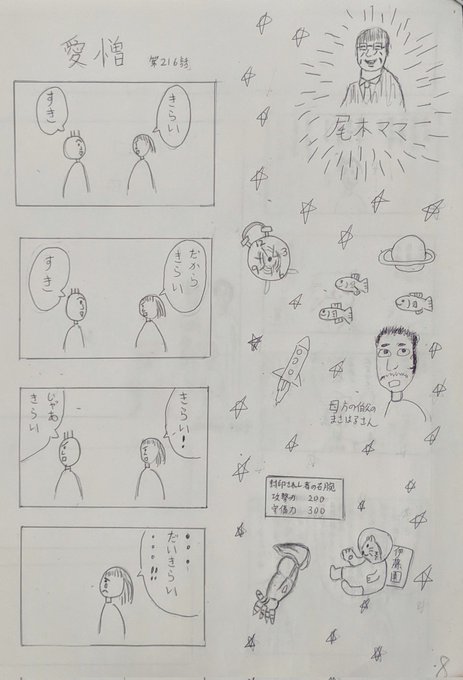 愛憎 第216話
きらい
すき
だから
きらい
すき
きらい!
じゃあ
きらい
・・・
だいきらい
・・・!!
尾木ママ
母方の叔父の
まさはるさん
封印されし者の右腕
攻撃力 200
守備力 300
伊藤園
8